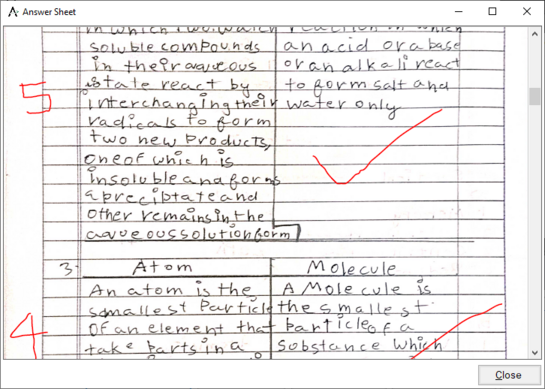 Answer Sheet
in which two water reaction in which
soluble compounds an acid or a base
in their aqueous or an alkali react
5 state react by to form salt and
interchanging their water only
radicals to form
two new products,
one of which is
insoluble and forms
a preciptate and
other remains in the
aqueous solution form
3. Atom Molecule
An atom is the A Molecule is
smallest Particle the smallest
4 of an element that particle of a
take parts in a substance which
Close